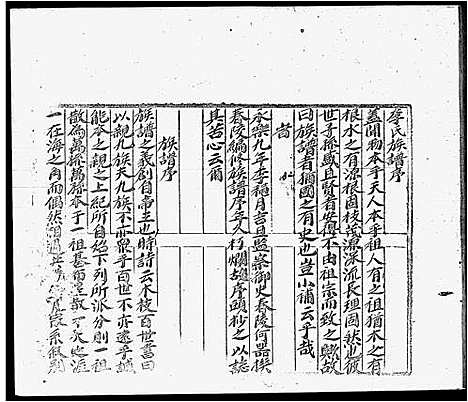 李氏族譜序
蓋聞物本乎天人本乎祖人有之祖猶木之有
根水之有源根固枝茂源深流長理固然也彼
世子孫盛且賢者安得不由祖宗而致之歟故
曰族譜者猶國之有史也豈小補云乎哉
旹
永樂九年李穐月吉旦監察御史春陵何器撰
春陵編修族譜序年久朽爛謹序頭抄之以誌
其苦心云爾
族譜序
族譜之義創自帝王也時詩云本枝百世書曰
以親九族夫九族不亦眾乎百世不亦遠乎誠
能本之親之上紀所自始下列所派分則一祖
散為萬孫萬孫本于一祖基布星散
一在海之角而偶然相遇